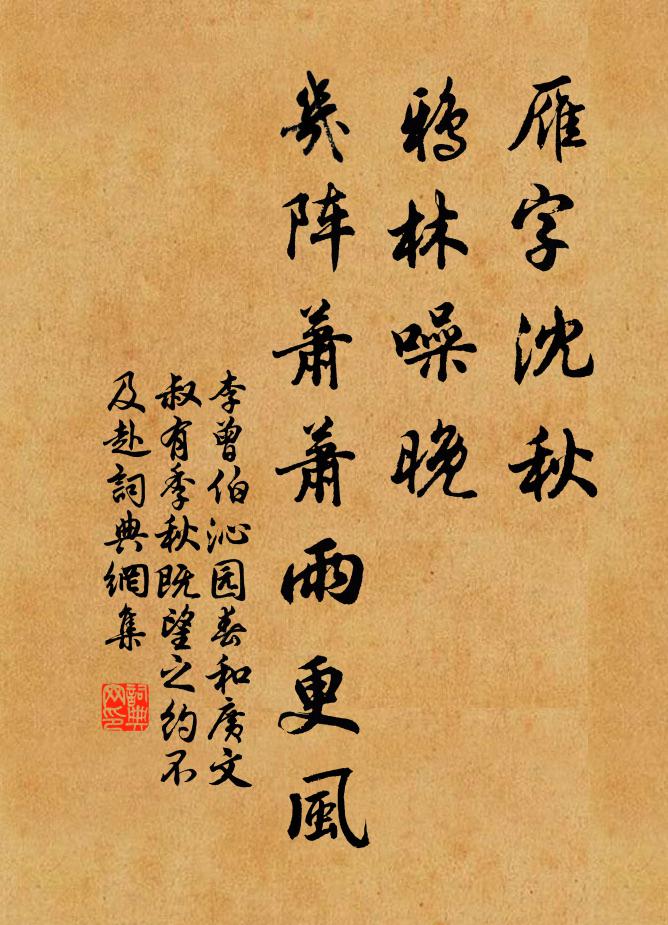 雁字沈秋
鸦林噪晚
几阵萧萧雨更风
李曾伯沁园春和广文
叔有季秋既望之约不
及赴詞典網集
詞典网印